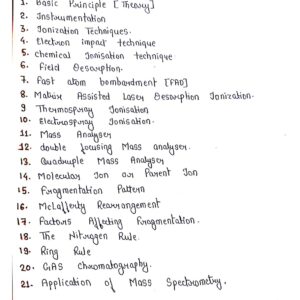 1. Basic Principle [Theory]
2. Instrumentation
3. Ionization Techniques.
4. Electron impact technique
5. Chemical Ionisation technique
6. Field Desorption.
7. Fast atom bombardment [FAB]
8. Matrix Assisted Laser Desorption Ionization.
9 Thermospray Ionisation
10. Electrospray Ionisation.
11. Mass Analyser
12. double focusing Mass analyser.
13. Quadruple Mass Analyser
14. Molecular Ion or Parent Ion
15. Fragmentation Pattern
16. McLafferty Rearrangement
17. Factors Affecting Fragmentation.
18. The Nitrogen Rule.
19. Ring Rule
20. GAS Chromatography.
21. Application of Mass Spectrometry.